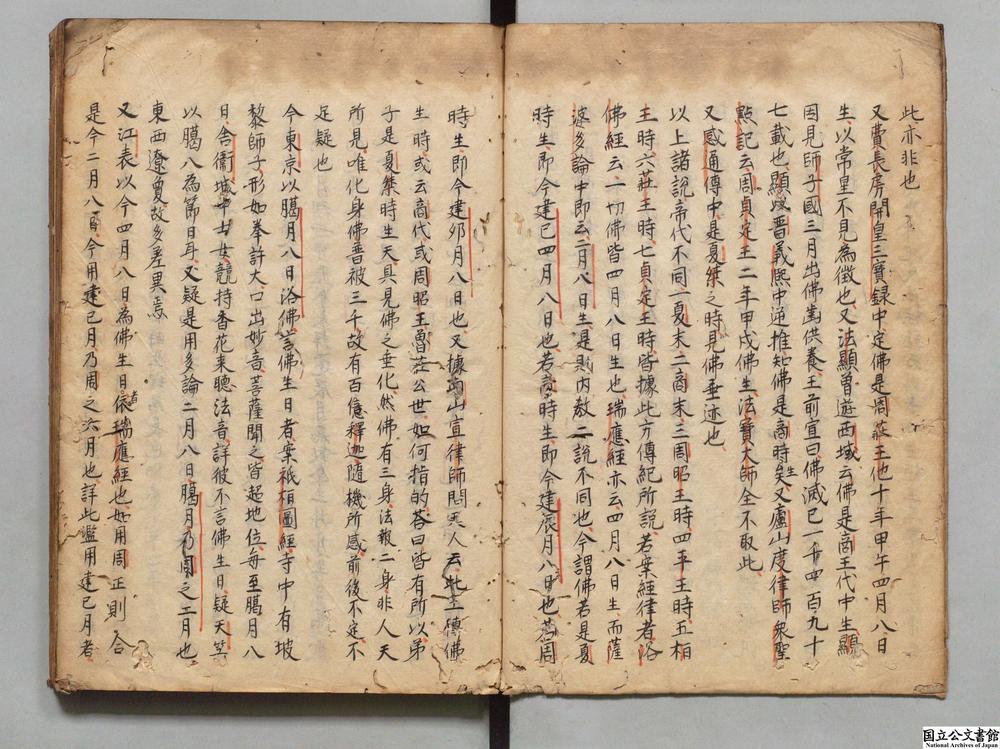 此亦非也
又費長房開皇三寶録中定佛是周莊王也十年甲午四月八日
生以常星不見為徴也又法顯曽遊西域云佛是商王代中生顯
因見師子國三月出佛齒供養王前宣曰佛滅已一千四百九十
七載也顯以晋義熙中逆推知佛是商時生矣又廬山度律師衆聖
㸃記云周貞定王二年甲戌佛生法寶大師全不取此
又感通傳中是夏桀之時見佛垂迹也
以上諸説帝代不同一夏末二商末三周昭王時四平王時五桓
王時六莊王時七貞定王時皆據此方傳紀所説若案經律者浴
佛經云一切佛皆四月八日生也瑞應經亦云四月八日生而薩
婆多論中即云二月八日生是則内教二説不同也今謂佛若是夏
時生即今建巳四月八日也若商時生即今建辰月八日也若周
時生即今建夘月八日也又據南山宣律師問天人云此土傳佛
生時或云商代或周昭王魯莊公世如何指的荅曰皆有所以弟
子是夏桀時生天具見佛之垂化然佛有三身法報二身非人天
所見唯化身佛普被三千故有百億釋迦隨機所感前後不定不
足疑也
今東京以臈月八日浴佛言佛生日者案祇桓圖經寺中有坡
黎師子形如拳許大口出妙音菩薩聞之皆起地位毎至臈月八
日舎衞城中士女競持香花来聴法音詳彼不言佛生日疑天竺
以臈八為節日耳又疑是用多論二月八日臈月乃周之二月也
東西遼夐故多差異焉
又江表以今四月八日為佛生日者依瑞應經也如用周正則合
是今二月八日今用建巳月乃周之六月也詳此濫用建巳月者
国立公文書館
National Archives of Japan